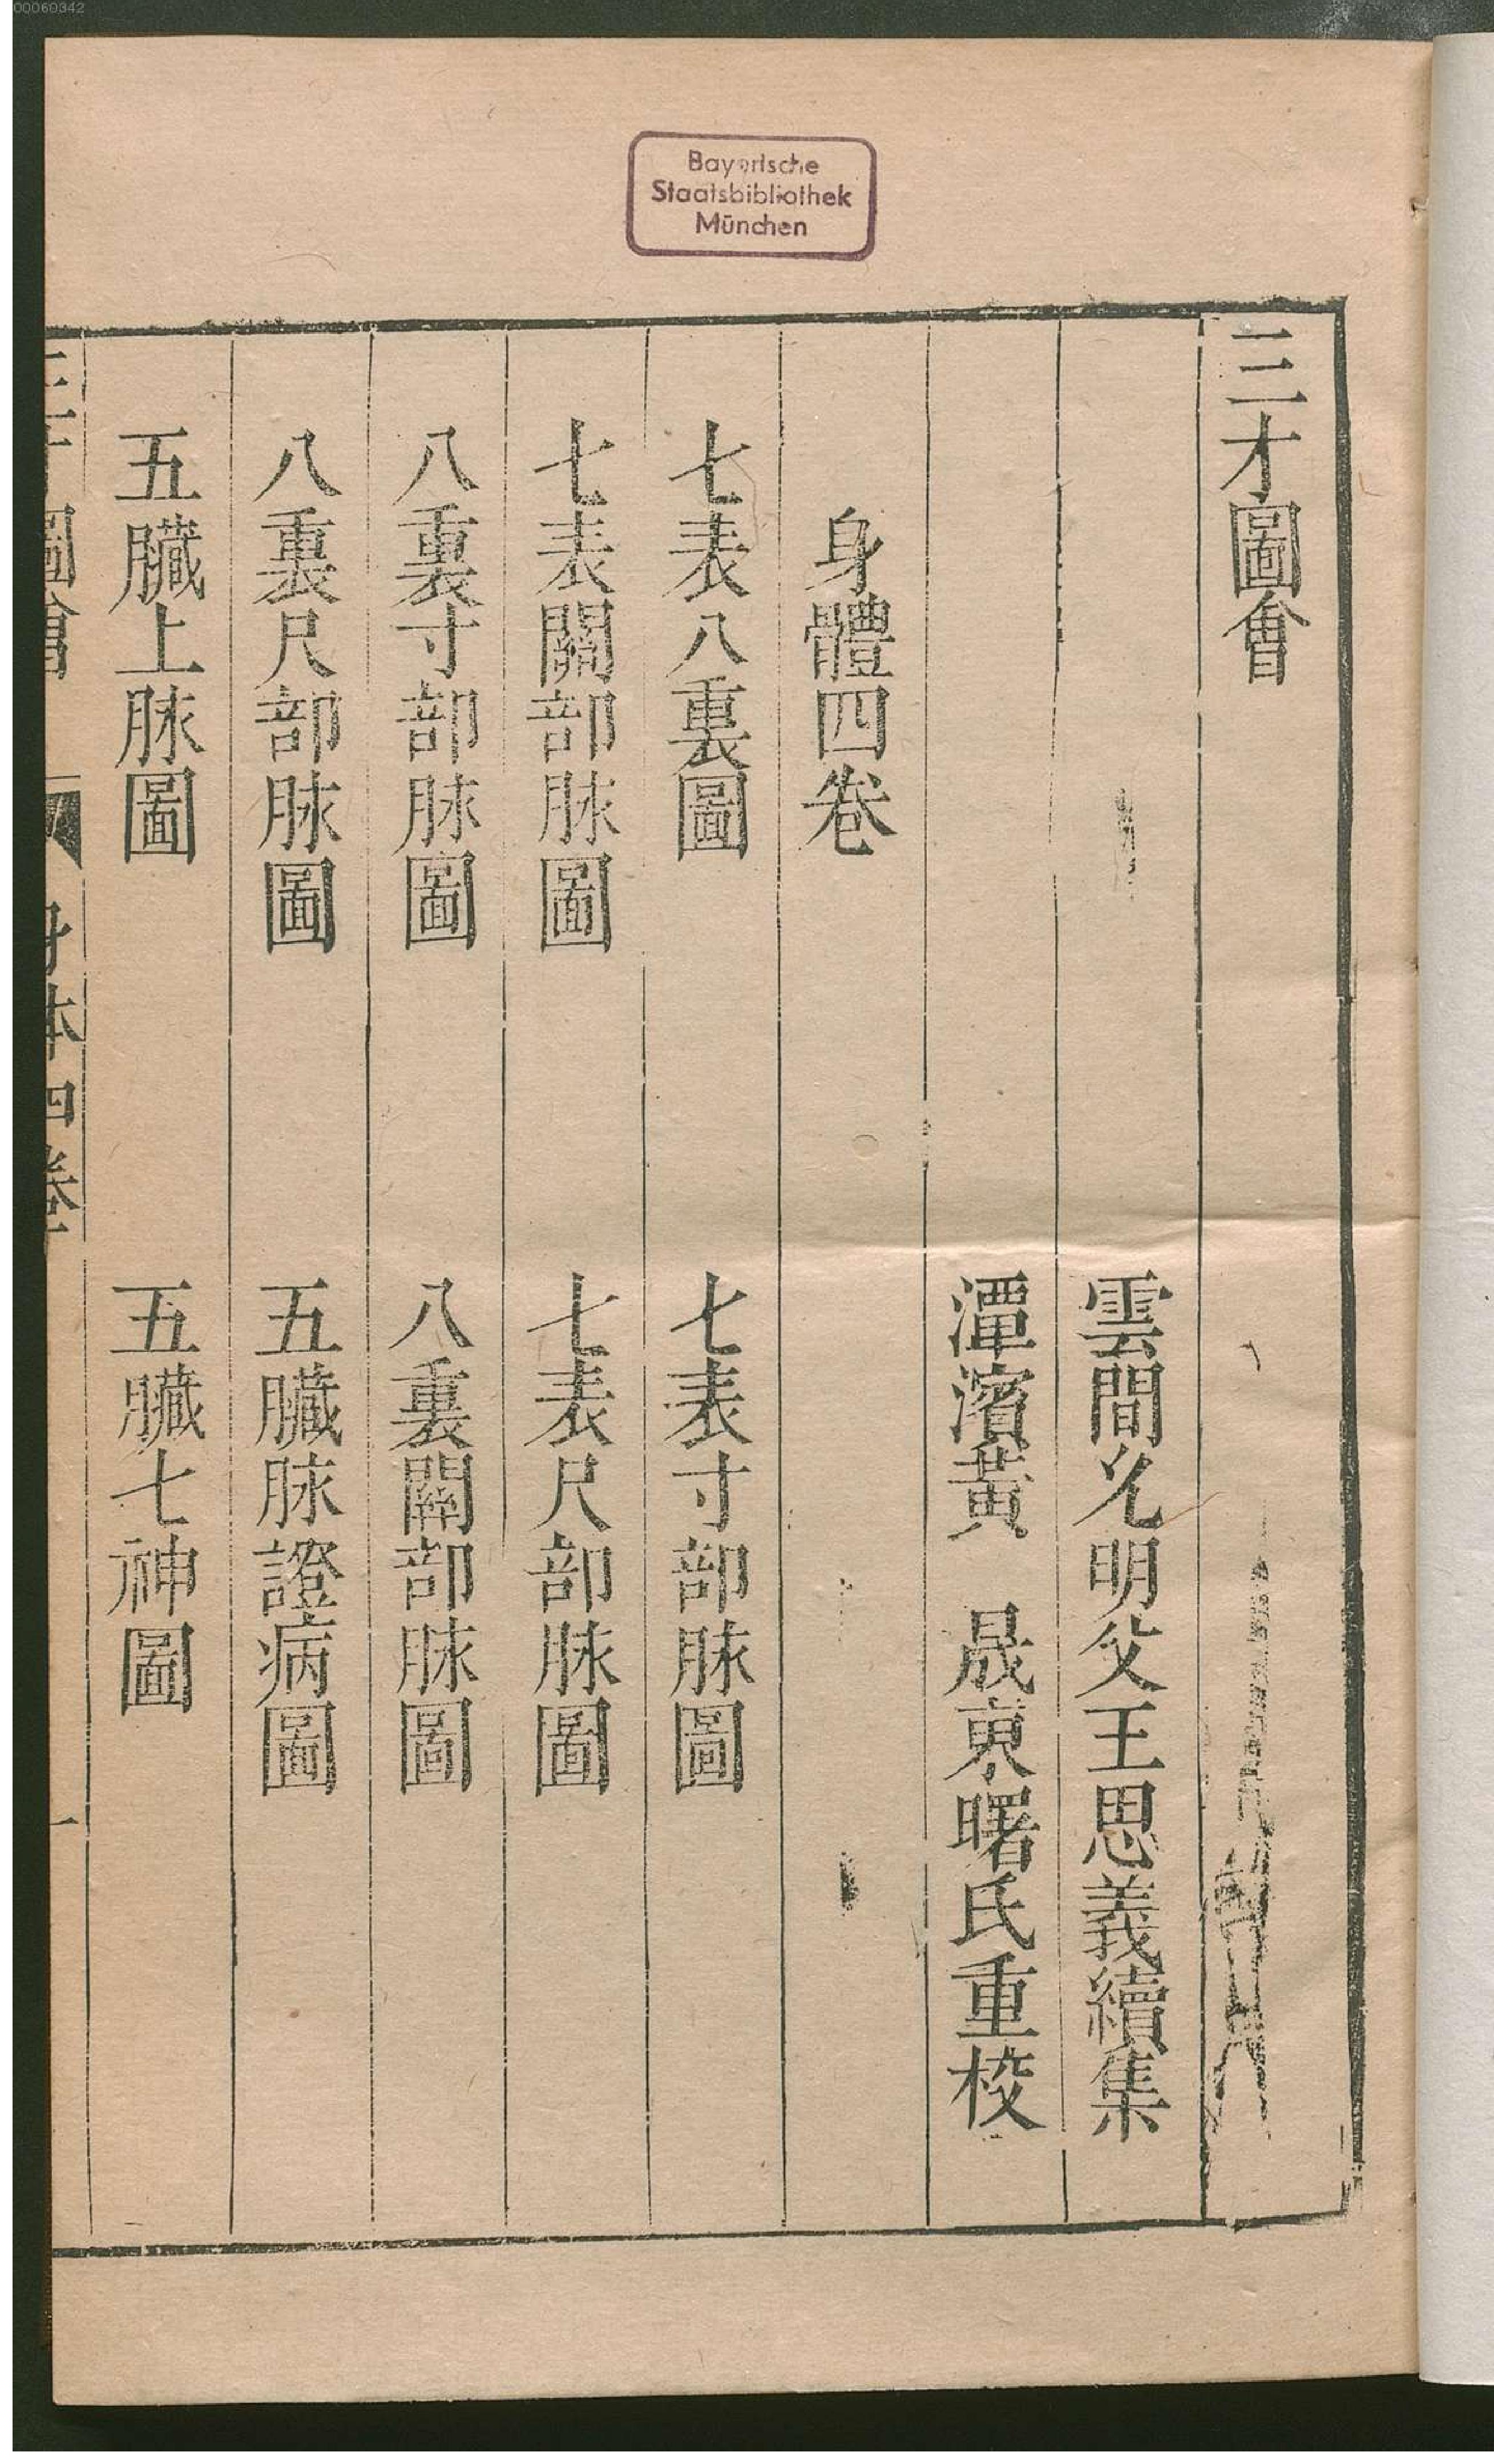 00060342
Bayerische
Staatsbibliothek
München
三才圖會
雲間允明父王思義續集
潭濱黃　晟東曙氏重校
身體四卷
七表八裏圖　七表寸部脉圖
七表關部脉圖　七表尺部脉圖
八裏寸部脉圖　八裏關部脉圖
八裏尺部脉圖　五臟脉證病圖
五臟上脉圖　五臟七神圖
三才圖會　身体四卷　一